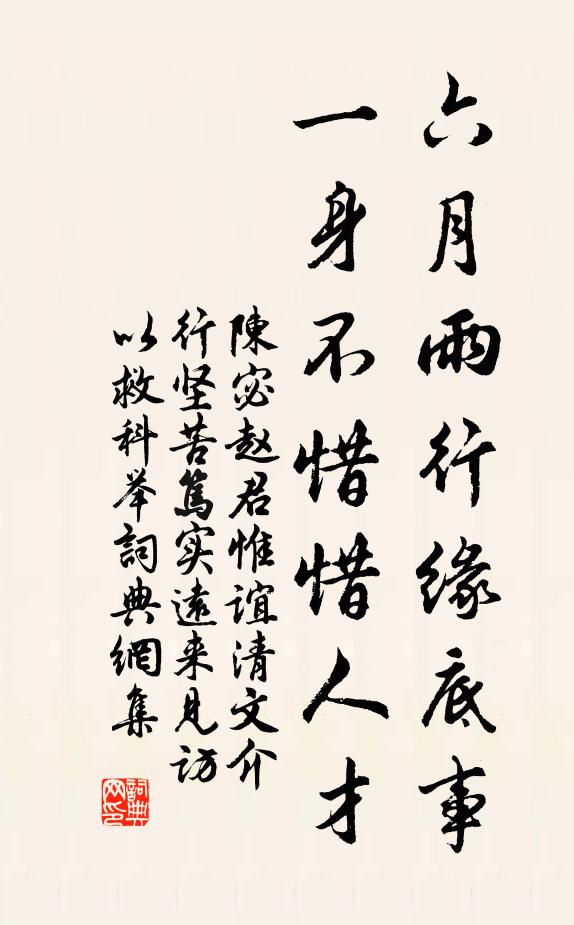 六月雨行緣底事
一身不惜惜人才
陳宓赵君惟誼清文介
行坚苦篤实遠来見访
以救科举詞典網集
詞典网印